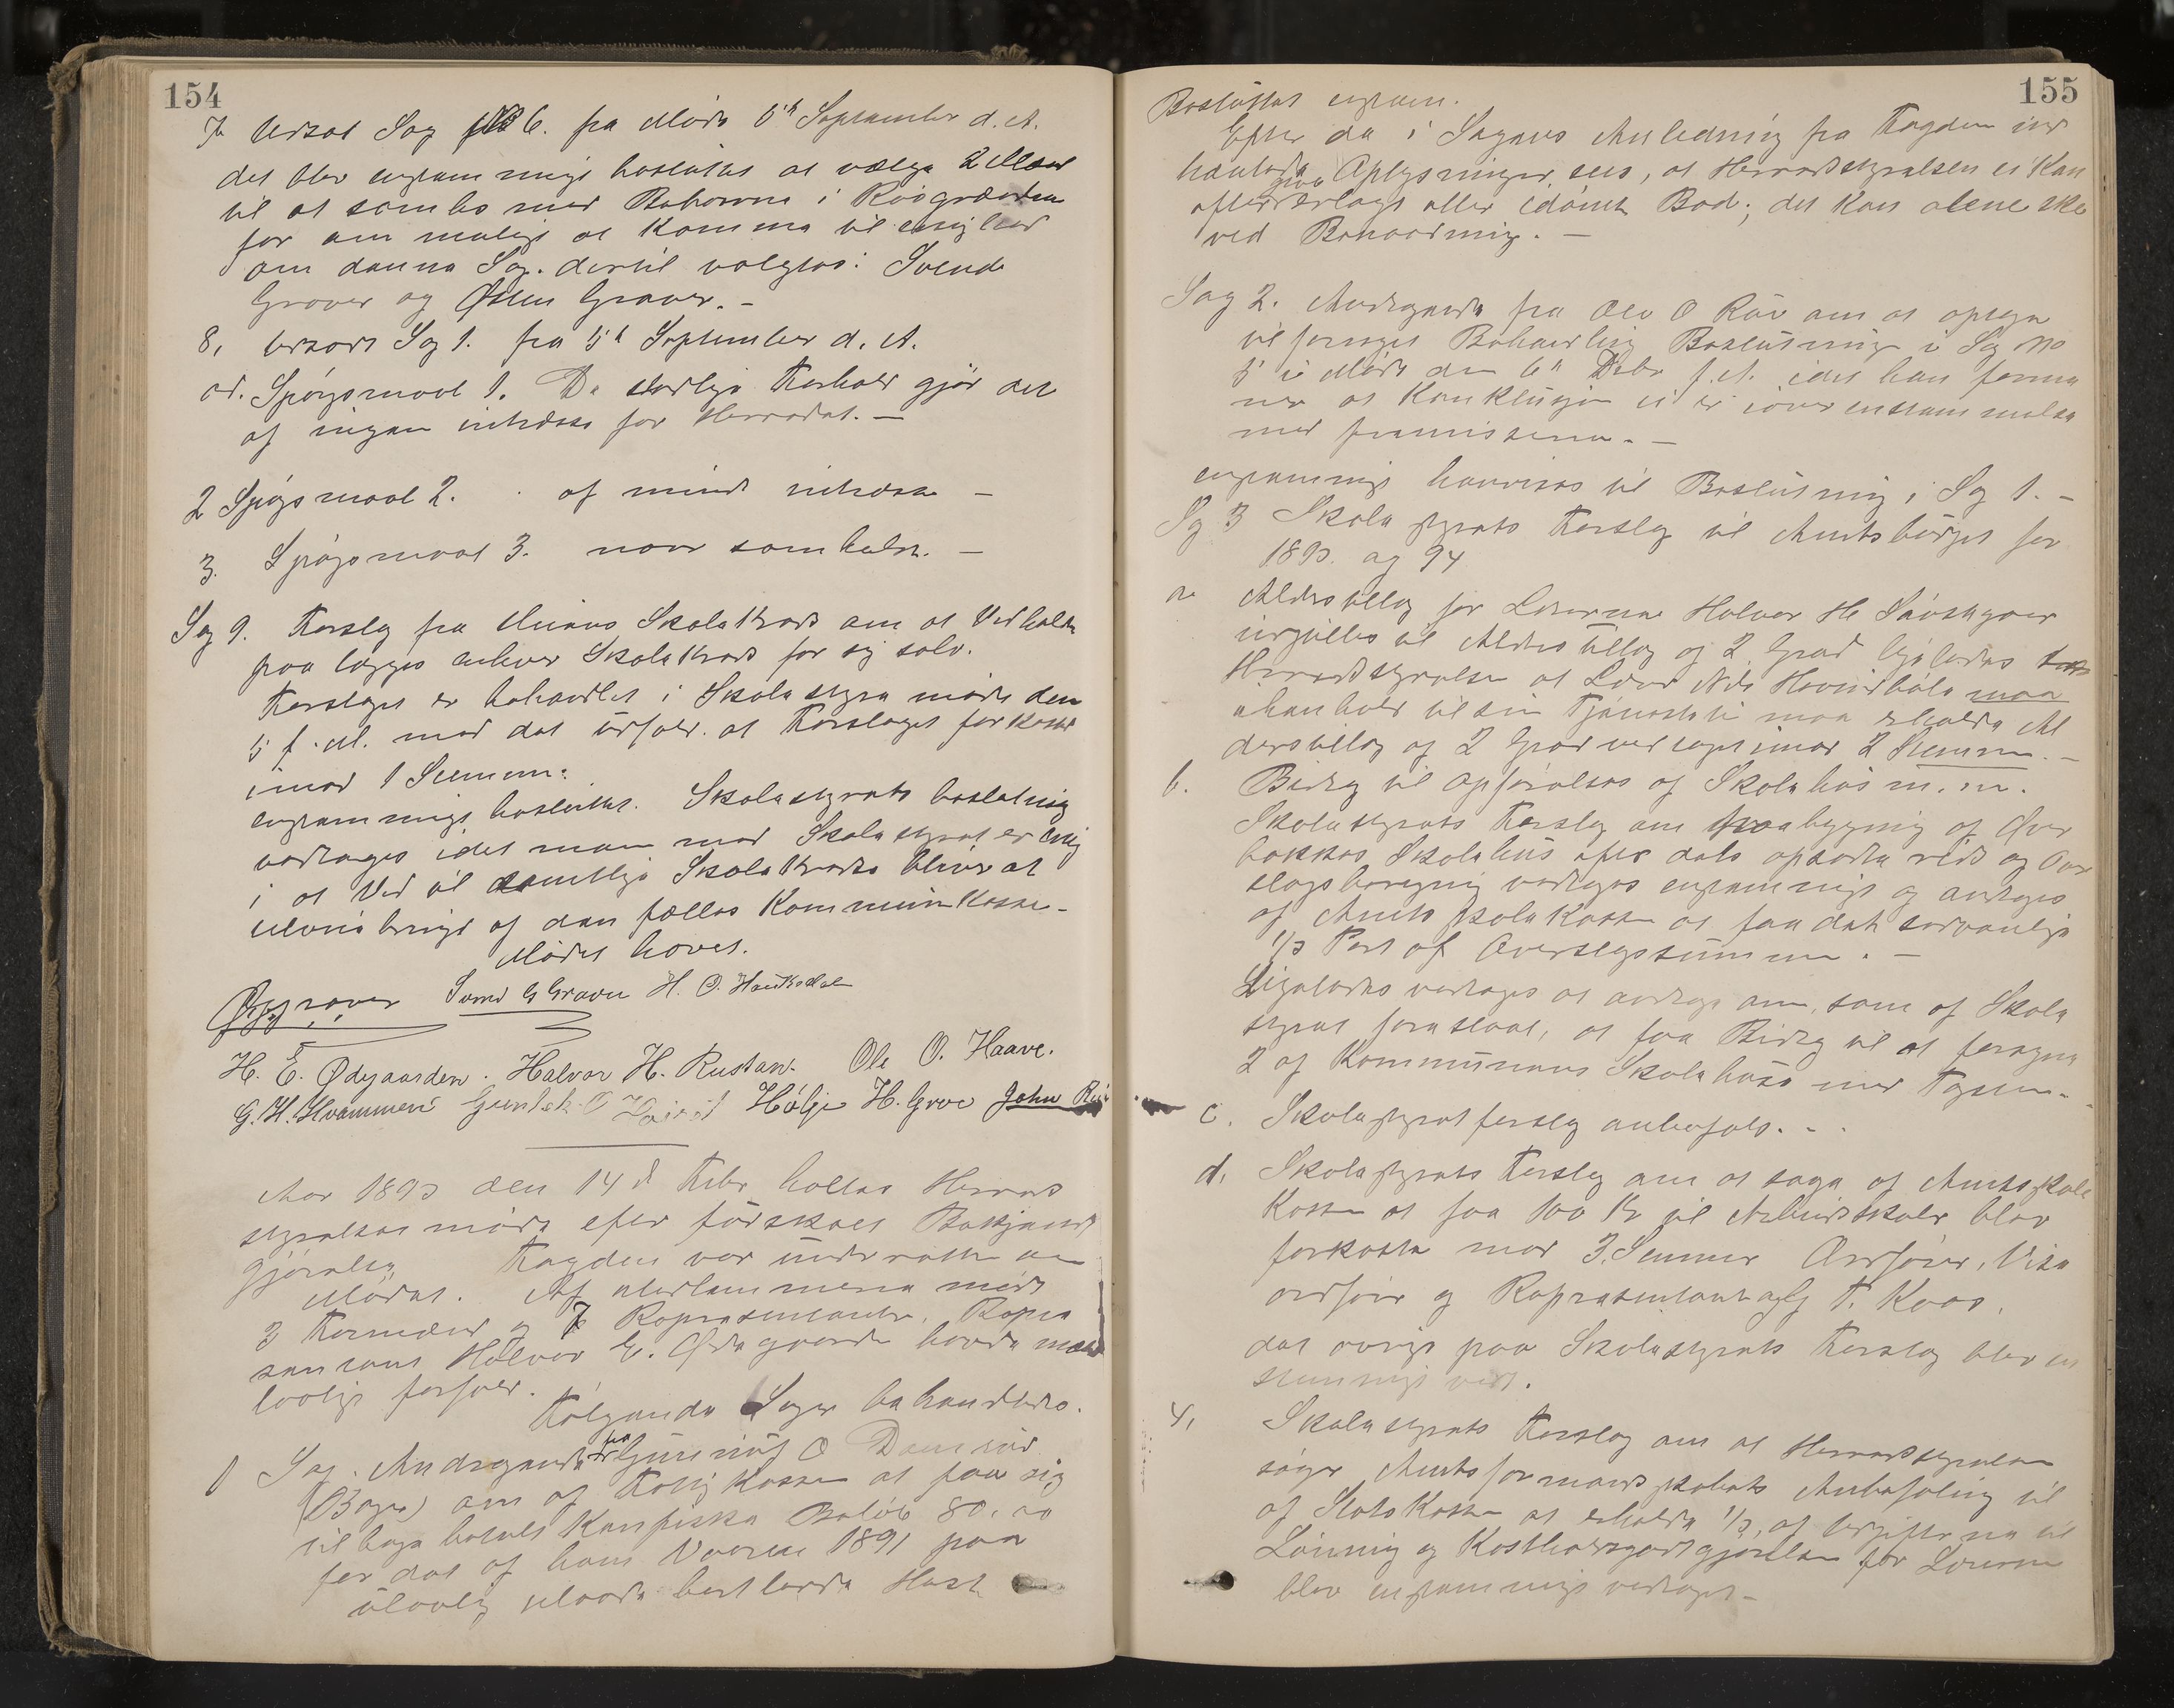 154
7 Udsat Sag No 6. fra Møde 5te September d. A.
det blev enstemmigt besluttet at vælge 2 Mænd
til at sambes med Beboerne i Røigrænden
for om muligt at komma til enighed
om denne Sag. dertil valgtes: Svend
Graver og Østen Graver. –
8, Udsat Sag 1. fra 5te September d. A.
ad. Spørgsmaal 1. De stedlige Forhold gjør det
af ingen intresse for Herredet. –
2 Spørgsmaal 2. af mindre intresse –
3. Spørgsmaal 3. naar somhelst. –
Sag 9. Forslag fra Skolekreds om at Vedholdet
paa lægges enhver Skolekreds for sig selv.
Forslaget er behandlet i Skolestyre møde den
5 f. M. med det udfald at Forslaget forkastet
imod 1 Stemme.
enstemmigt besluttet. Skolestyrets beslutning
vedtages idet man med Skolestyret er enig
i at Ved til samtlige Skolekredse bliver at
udvirke bringe af den fælles Kommunekasse –
Mødet hævet.
Svend G Graver H. O. Haukedalen
H. E. Ødegaarden. Halvor H. Rustan. Ole O. Haave.
G. H. Hvammen Gunleik O Hølje H. Groe John
Aar 1893 den 14de Febr holdtes Herreds
styrelsesmøde efter fudskaet Bekjendt
gjørelse Fogden var underrettet om
Mødet. Af Medlemmerne mødte
3 Formænd og 7 Repræsentanter. Repræ
sentant Halvor E. Ødegaarden havde meldt
lovligt forfald.
Følgende Sager behandledes.
1 Sag. Andragende fra Gunnuf O
(Boger) om af Fattigkassen at faa sig
tilbage betalt Konfiska Beløb 80,00
for det af ham Vaaren 1891 paa
ulovlig Maade Hest
155
Besluttet enstem.
Efter de i Sagens Anledning fra Fogden ind
hentede Oplysninger, sees, at Herredstyrelsen ei kan
eftergive erlagt eller idømt Bod; det kan alene ske
ved Benaadning. –
Sag 2. Andragende fra Ole O Rui om at optage
til fornyet Behandling Beslutning i Sag No
5 i Møde den 6te Debr f. A. idet han forme
ner at Konklusjon ei er i overenstemmelse
med præmissene. –
enstemmigt henvises til Beslutning i Sag 1. –
Sag 3 Skolestyrets Forslag til Amtsbudget for
1893. og 94
a Alderstillæg for Lærerne Halvor H
indstilles til Alderstillæg af 2 Grad ligeledes
Herredstyrelsen at Lærer Nils maa
i henhold til sin Tjenestetid maa erholde Al
derstillæg af 2 Grad vedtaget imod 2 Stemmer. –
b. Bidrag til Opførelse af Skolehus m. m.
Skolestyrets Forslag om paabygning af Øver
bøkkes Skolehus efter dets opsatte rids og Over
slagsberegning vedtages enstemmigt og andrages
af Amtsskolekassen at faa det sedvanlige
1/3 Part af Overslagssummen. –
Ligeledes vedtages at andrage om, som af Skole
styret foreslaaet, at faa Bidrag til at forsyne
2 af Kommunens Skolehuse med
c. Skolestyret forslag anbefales. –
d. Skolestyrets Forslag om at søge af Amtsskole
kassen at faa 100 Kr til Arbeidsskoler blev
forkastet mod 3. Stemmer Ordfører, Vise
ordfører og Repræsentant
det øvrige paa Skolestyrets Forslag blev en
stemmigt vedt.
4, Skolestyrets Forslag om at Herredstyrelsen
søger Amtsformandskabets Anbefaling til
af Statskassen at erholde 1/3, af Udgifterne til
Lønning og Kostholdsgodtgjørelse for Lærerne
blev enstemmigt vedtaget –